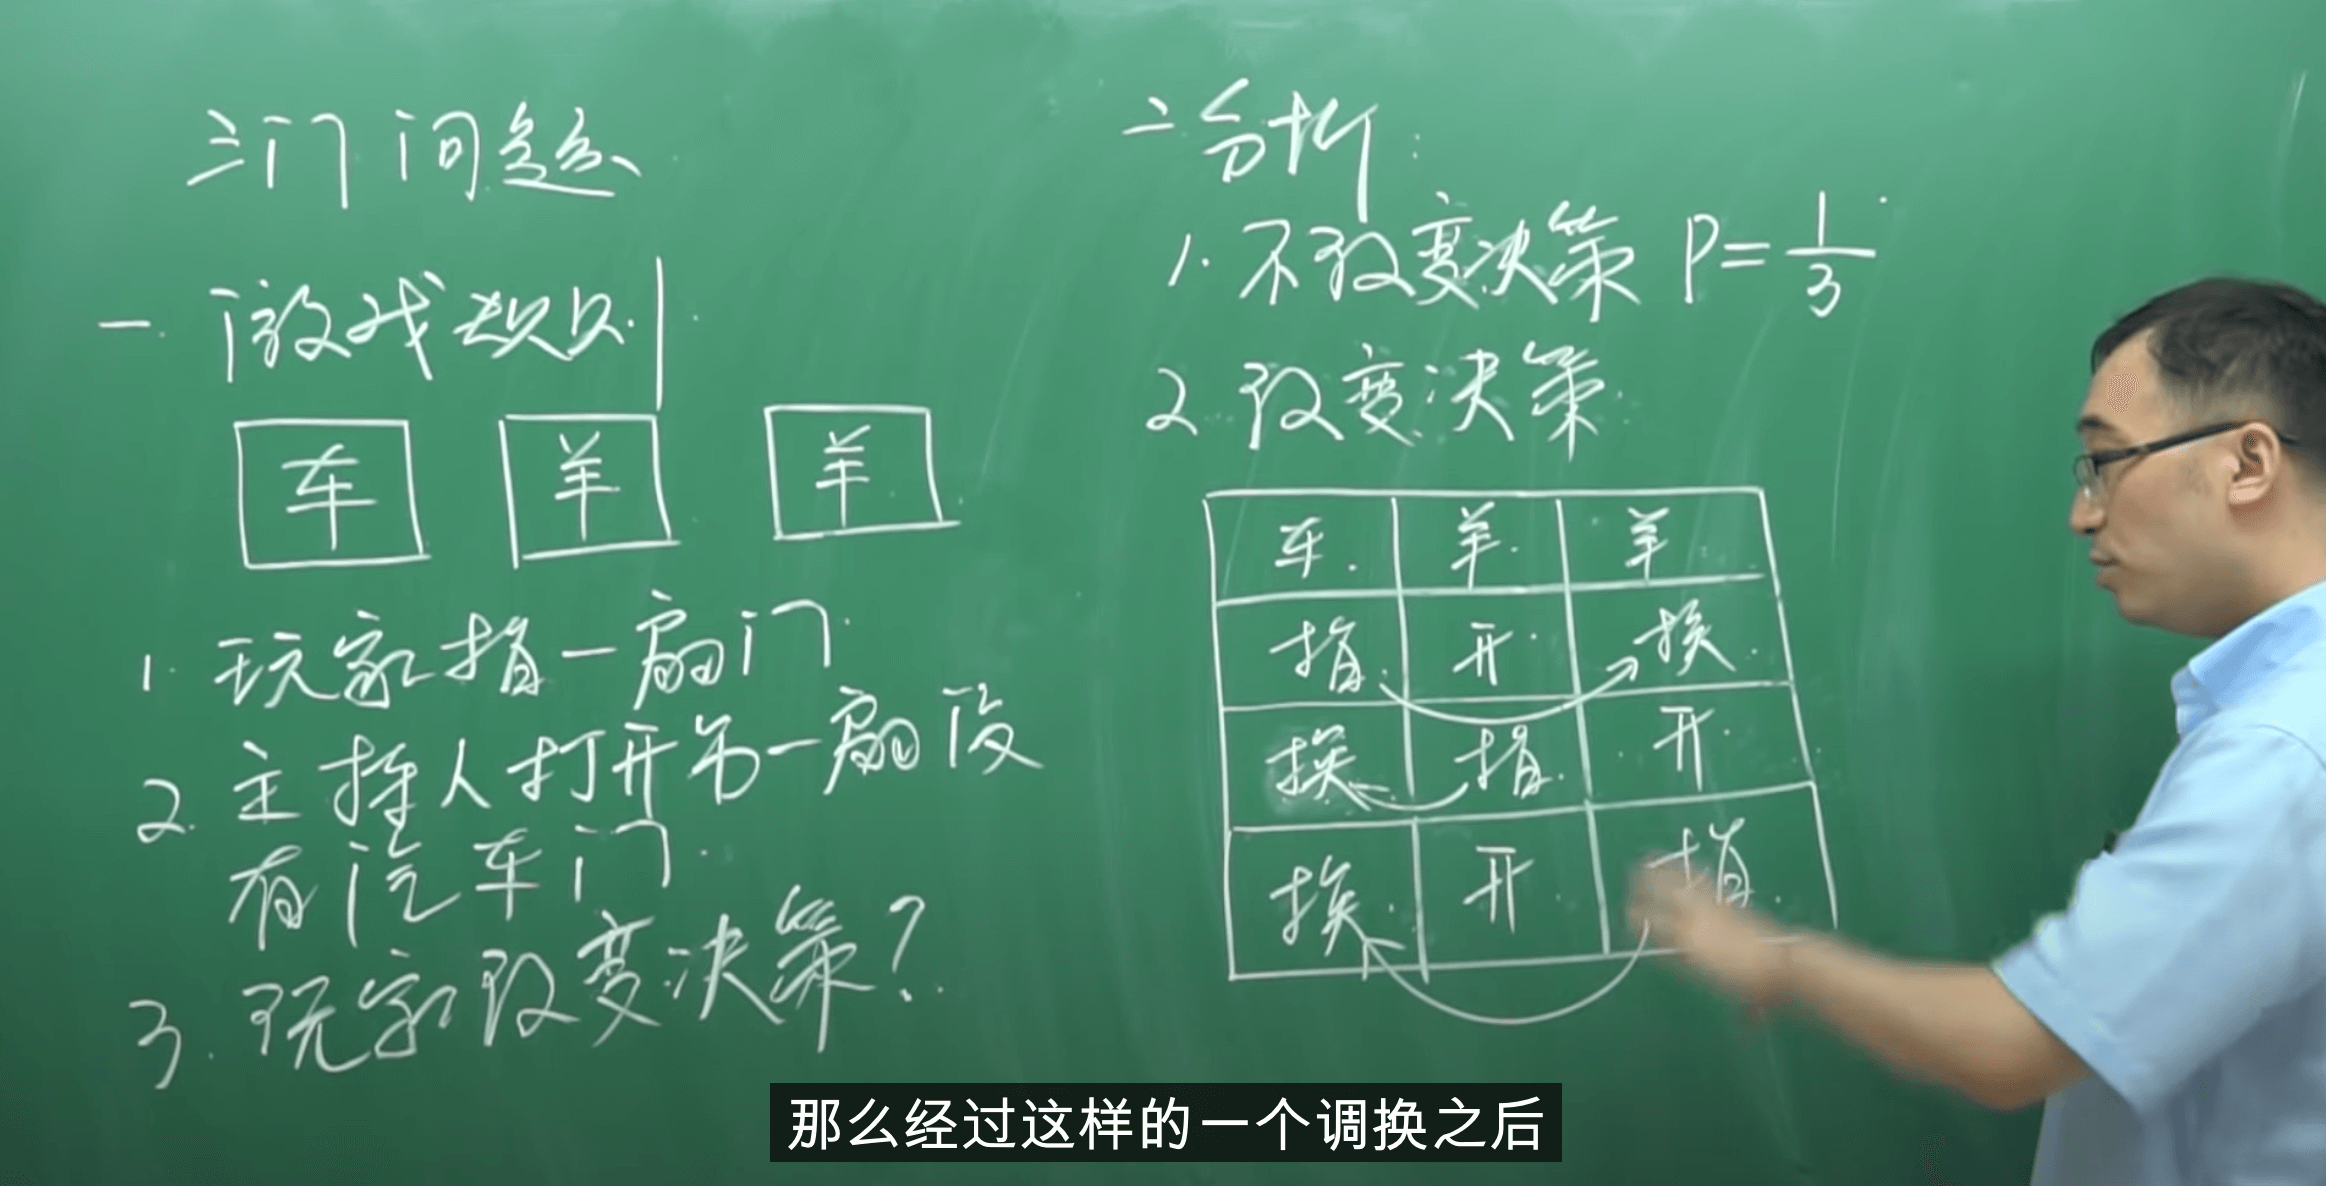 三门问题
一.游戏规则
车 羊 羊
1.玩家指一扇门
2.主持人打开另一扇没
有汽车门
3.玩家改变决策?
二分析:
1.不改变决策 P=1/3
2.改变决策
车 羊 羊
指 开 换
换 指 开
换 开 指
那么经过这样的一个调换之后